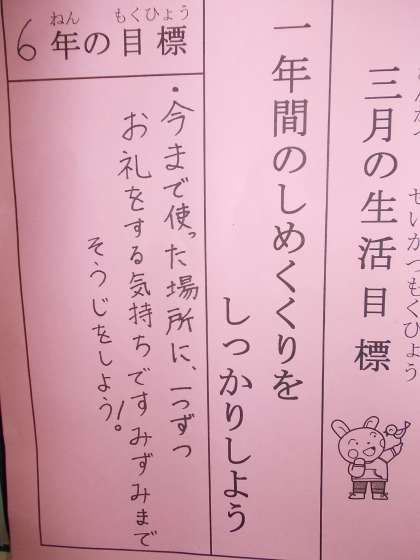 三月の生活目標
がつ
せいかつもくひょう
一年間のしめくくりを
しっかりしよう
ねん もくひょう
6年の目標
・今まで使った場所に、一つずつ
お礼をする気持ちですみずみまで
そうじをしよう!。